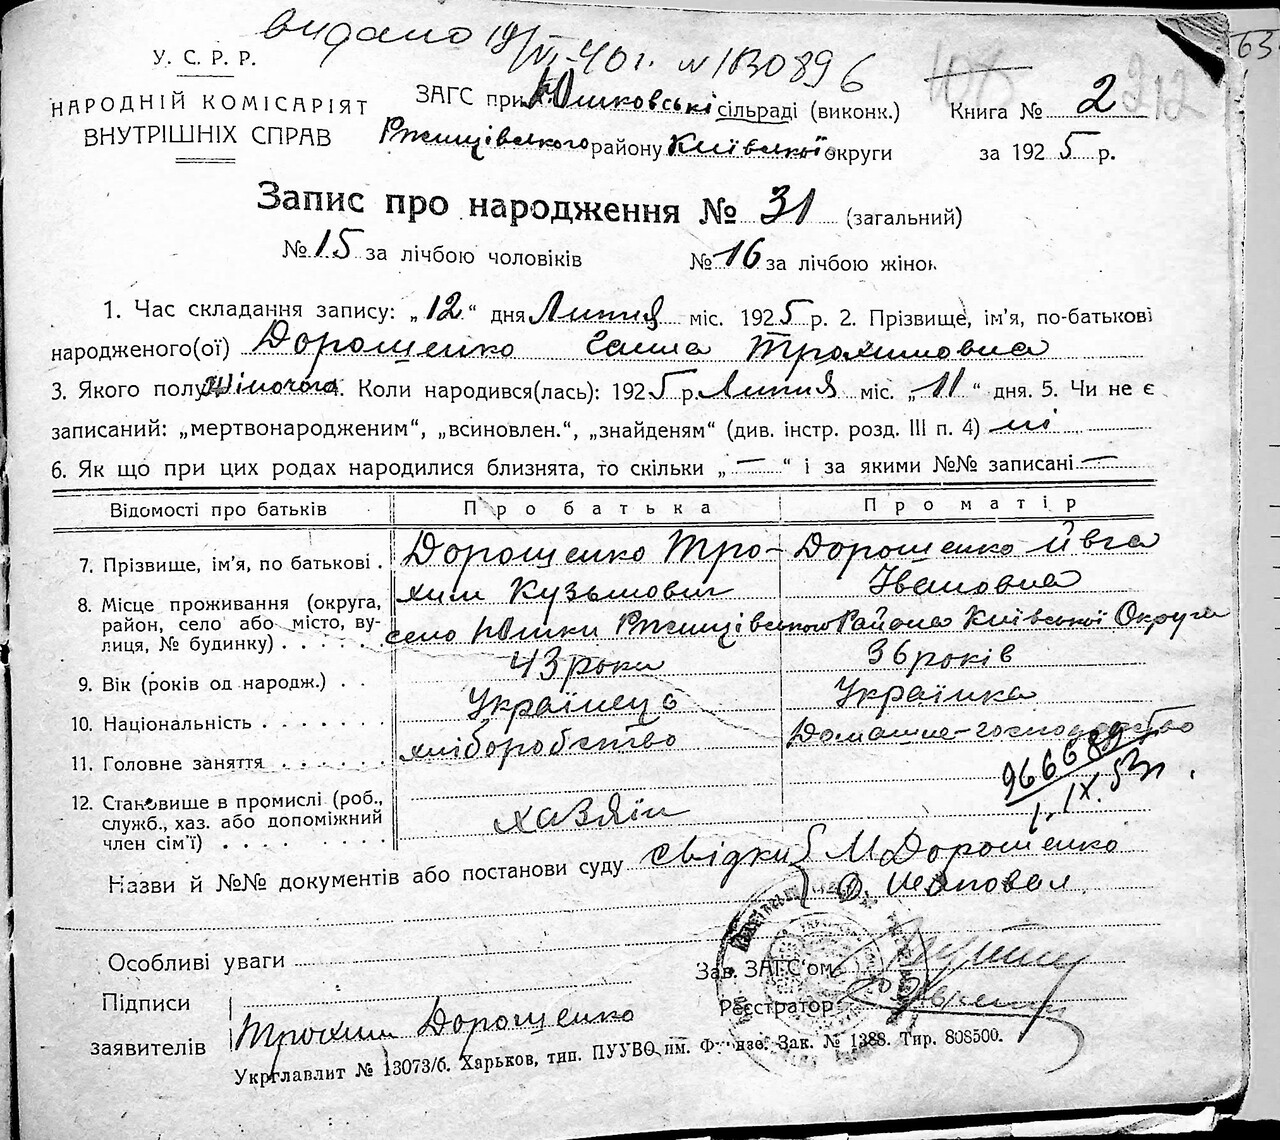 видано 19/VI-40 г. № 180896
У. С. Р. Р.
НАРОДНІЙ КОМІСАРІЯТ
ВНУТРІШНІХ СПРАВ
63
108
212
ЗАГС при Юшковській сільраді (виконк.)
Ржищівського району Київської округи
Книга № 2
за 1925 р.
Запис про народження № 31 (загальний)
№ 15 за лічбою чоловіків № 16 за лічбою жінок
1. Час складання запису: „12“ дня Липня міс. 1925 р. 2. Прізвище, ім’я, по-батькові
народженого(ої) Дорощенко Ганна Трохимовна
3. Якого полу жіночого 4. Коли народився(лась): 1925 р. Липня міс. „11“ дня. 5. Чи не є
записаний: „мертвонародженим“, „всиновлен.“, „знайденям“ (див. інстр. розд. III п. 4) ні
6. Як що при цих родах народилися близнята, то скільки „—“ і за якими №№ записані —
Відомості про батьків Про батька Про матір
7. Прізвище, ім’я, по батькові . Дорощенко Трохим Кузьмович Дорошенко Ївга Івановна
8. Місце проживання (округа,
район, село або місто, вулиця, № будинку) . . . . . село Юшки Ржищівського Района Київської Округи
9. Вік (років од народж.) . . 43 роки 36 років
10. Національність . . . . . . . Українець Українка
11. Головне заняття . . . . . . хліборобство Домашне-господарство
966689
1.IX.53 г.
12. Становище в промислі (роб.,
служб., хаз. або допоміжний
член сім’ї) . . . . . . . . хазяїн
Назви й №№ документів або постанови суду свідки М Дорошенко
О. Шаповал
Особливі уваги
Зав. ЗАГС’ом
Реєстратор
Підписи
заявителів Трохим Дорощенко
Укрглавлит № 13073/б. Харьков, тип. ПУУВО им. Фрунзе. Зак. № 1388. Тир. 808500.